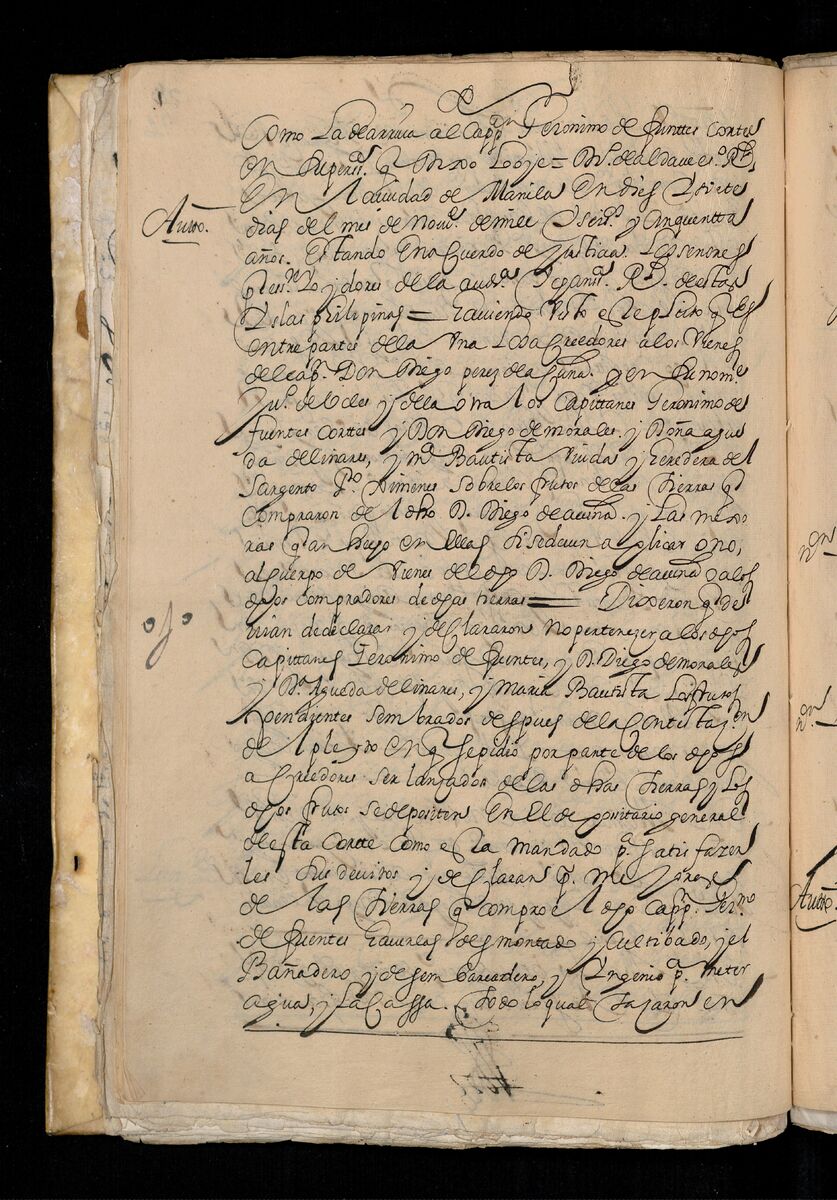 Como La de arriva al Capp.n Geronimo de fuenttes Cortes
en su pers.a q Dixo Lo oye = D.o de aldave s.o R.l
Autto.
En la ciudad de Manila En dies Y siete
dias del mes de Nou.e de mill Y seis.s y Cinquentta
años. Estando En aCuerdo de Justicia. Los senores
pres.te Y oydores de lla aud.a Y chan.a R.l de estas
Yslas philipinas = haviendo Visto este pleito q Es
entre partes de lla Vna Los aCreedores a los Vienes
del cap.n Don Diego perez de aCuña. y en su nom.e
Ju.o de Celes y de lla otra los Capittanes Geronimo de
fuentes Corttes y Don Diego de morales. y Doña ague
da de linares, y m.a Bautista Viuda y heredera del
Sargento P.o Ximenes sobre los frutos de las Tierras q
Compraron del dho D. Diego de acuña. y Las mexo
ras q an hecho en Ellas si se deuen aplicar o no,
al cuerpo de Vienes del dho D. Diego de acuña o a los
dhos compradores de dhas tierras = Dixeron q de
uian de declarar y declararon no pertenezer a los dhos
Capittanes Geronimo de fuentes, y D. Diego de morales
y D.a Agueda de linares, y Maria Bautista Los frutos
pendientes sembrados despues de la Contestaz.on
del pleyto en q se pidio por parte de los dhos
aCreedores ser lanzados de llas dhas Tierras y Los
dhos frutos se depositen En El depositario general
de esta Cortte Como esta mandado p.a satisfazer
les sus devitos y declaran p.r mejoras
de las Tierras q compro el dho Capp.n Ger.mo
de fuentes haverlas desmontado y Cultibado, y el
Bañadero y desembarcadero, y Yngenio p.a meter
agua, y La Cassa. Todo lo qual Tasaron en